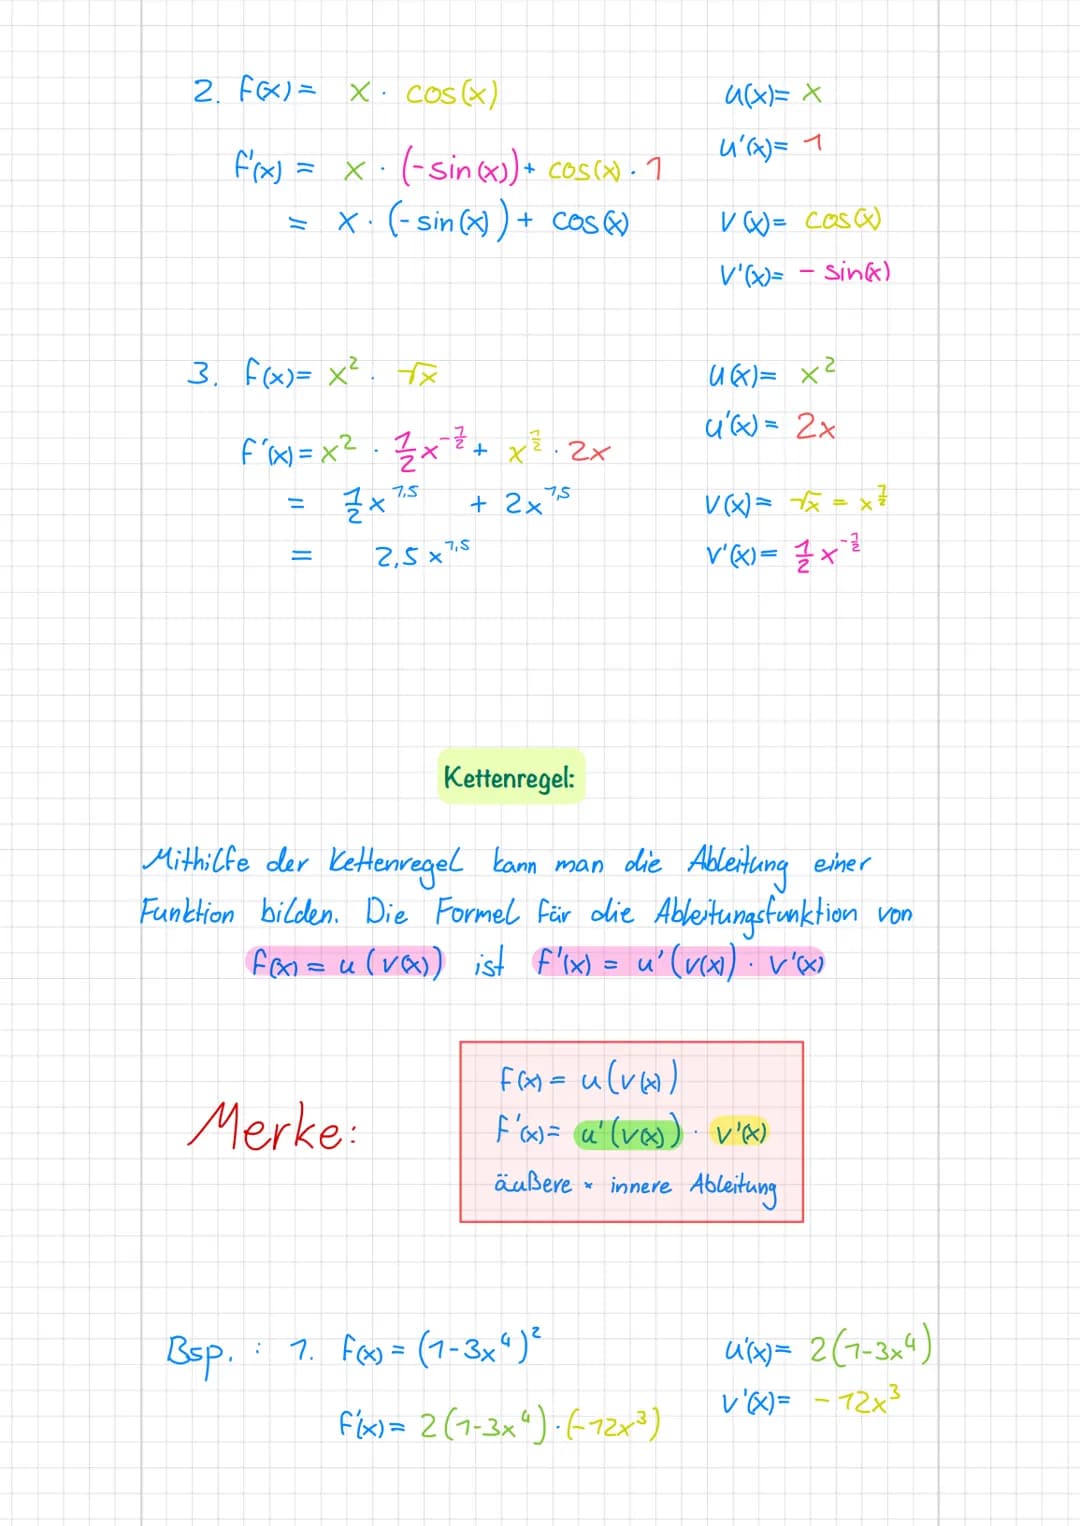 2. f(x) = x · cos(x)
u(x) = x
u'(x) = 1
f'(x) = x · (-sin(x)) + cos(x) · 1
= x · (-sin(x)) + cos(x)
v(x) = cos(x)
v'(x) = - sin(x)
3. f(x) = x² · √x
u(x) = x²
u'(x) = 2x
f'(x) = x² · 1/2 x^(-1/2) + x^(1/2) · 2x
= 1/2 x^1,5 + 2x^1,5
v(x) = √x = x^(1/2)
= 2,5 x^1,5
v'(x) = 1/2 x^(-1/2)
Kettenregel:
Mithilfe der Kettenregel kann man die Ableitung einer
Funktion bilden. Die Formel für die Ableitungsfunktion von
f(x) = u(v(x)) ist f'(x) = u'(v(x)) · v'(x)
Merke:
f(x) = u(v(x))
f'(x) = u'(v(x)) · v'(x)
äußere × innere Ableitung
Bsp. : 1. f(x) = (1-3x⁴)²
u'(x) = 2(1-3x⁴)
v'(x) = -12x³
f'(x) = 2(1-3x⁴) · (-12x³)